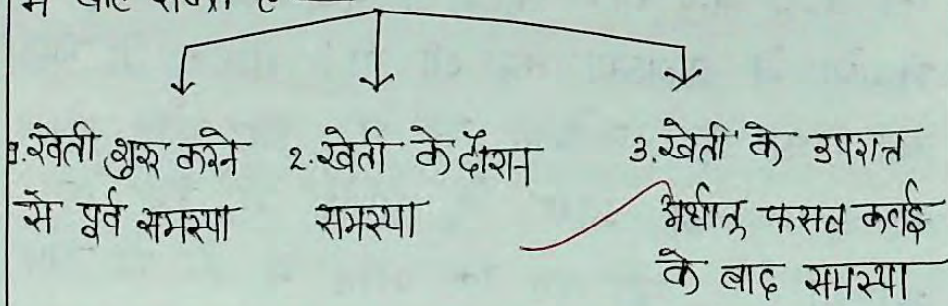 में बाँट सकते हैं
1. खेती शुरू करने से पूर्व समस्या
2. खेती के दौरान समस्या
3. खेती के उपरान्त अर्थात् फसल कटाई के बाद समस्या